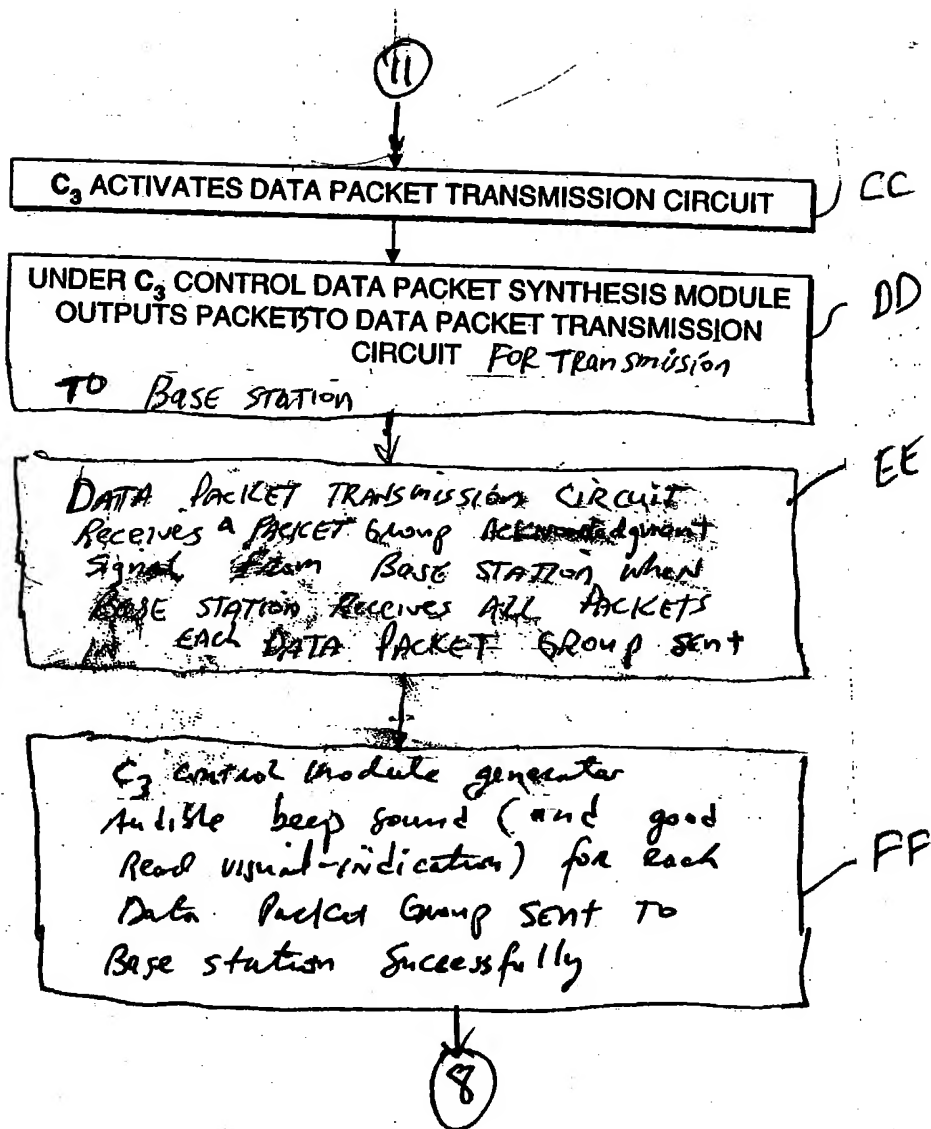 11
C₃ ACTIVATES DATA PACKET TRANSMISSION CIRCUIT
CC
UNDER C₃ CONTROL DATA PACKET SYNTHESIS MODULE
OUTPUTS PACKETS TO DATA PACKET TRANSMISSION
CIRCUIT FOR Transmission
TO Base STATION
DD
DATA PACKET TRANSMISSION CIRCUIT
Receives a PACKET Group Acknowledgment
Signal From BASE STATION when
BASE STATION Receives ALL PACKETS
EACH DATA PACKET GROUP Sent
EE
C₃ control module generates
Audible beep sound (and good
Read visual-indication) for each
Data Packet Group SENT TO
Base station Successfully
FF
8